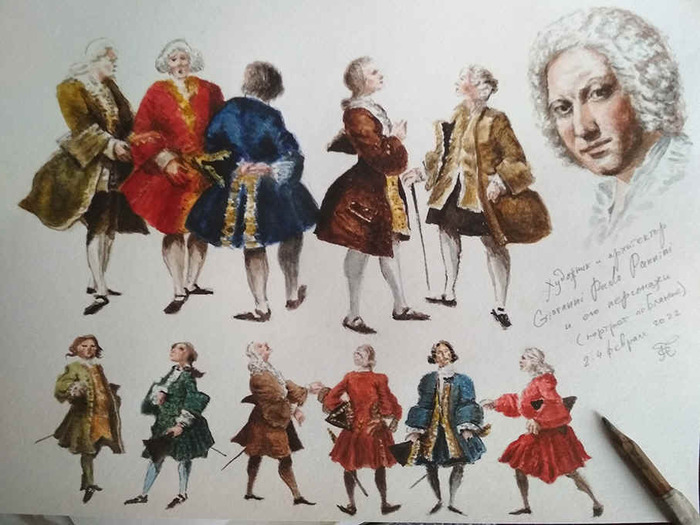 Художник и архитектор
Giovanni Paolo Pannini
и его персонажи
(портрет
24 февраля 2022